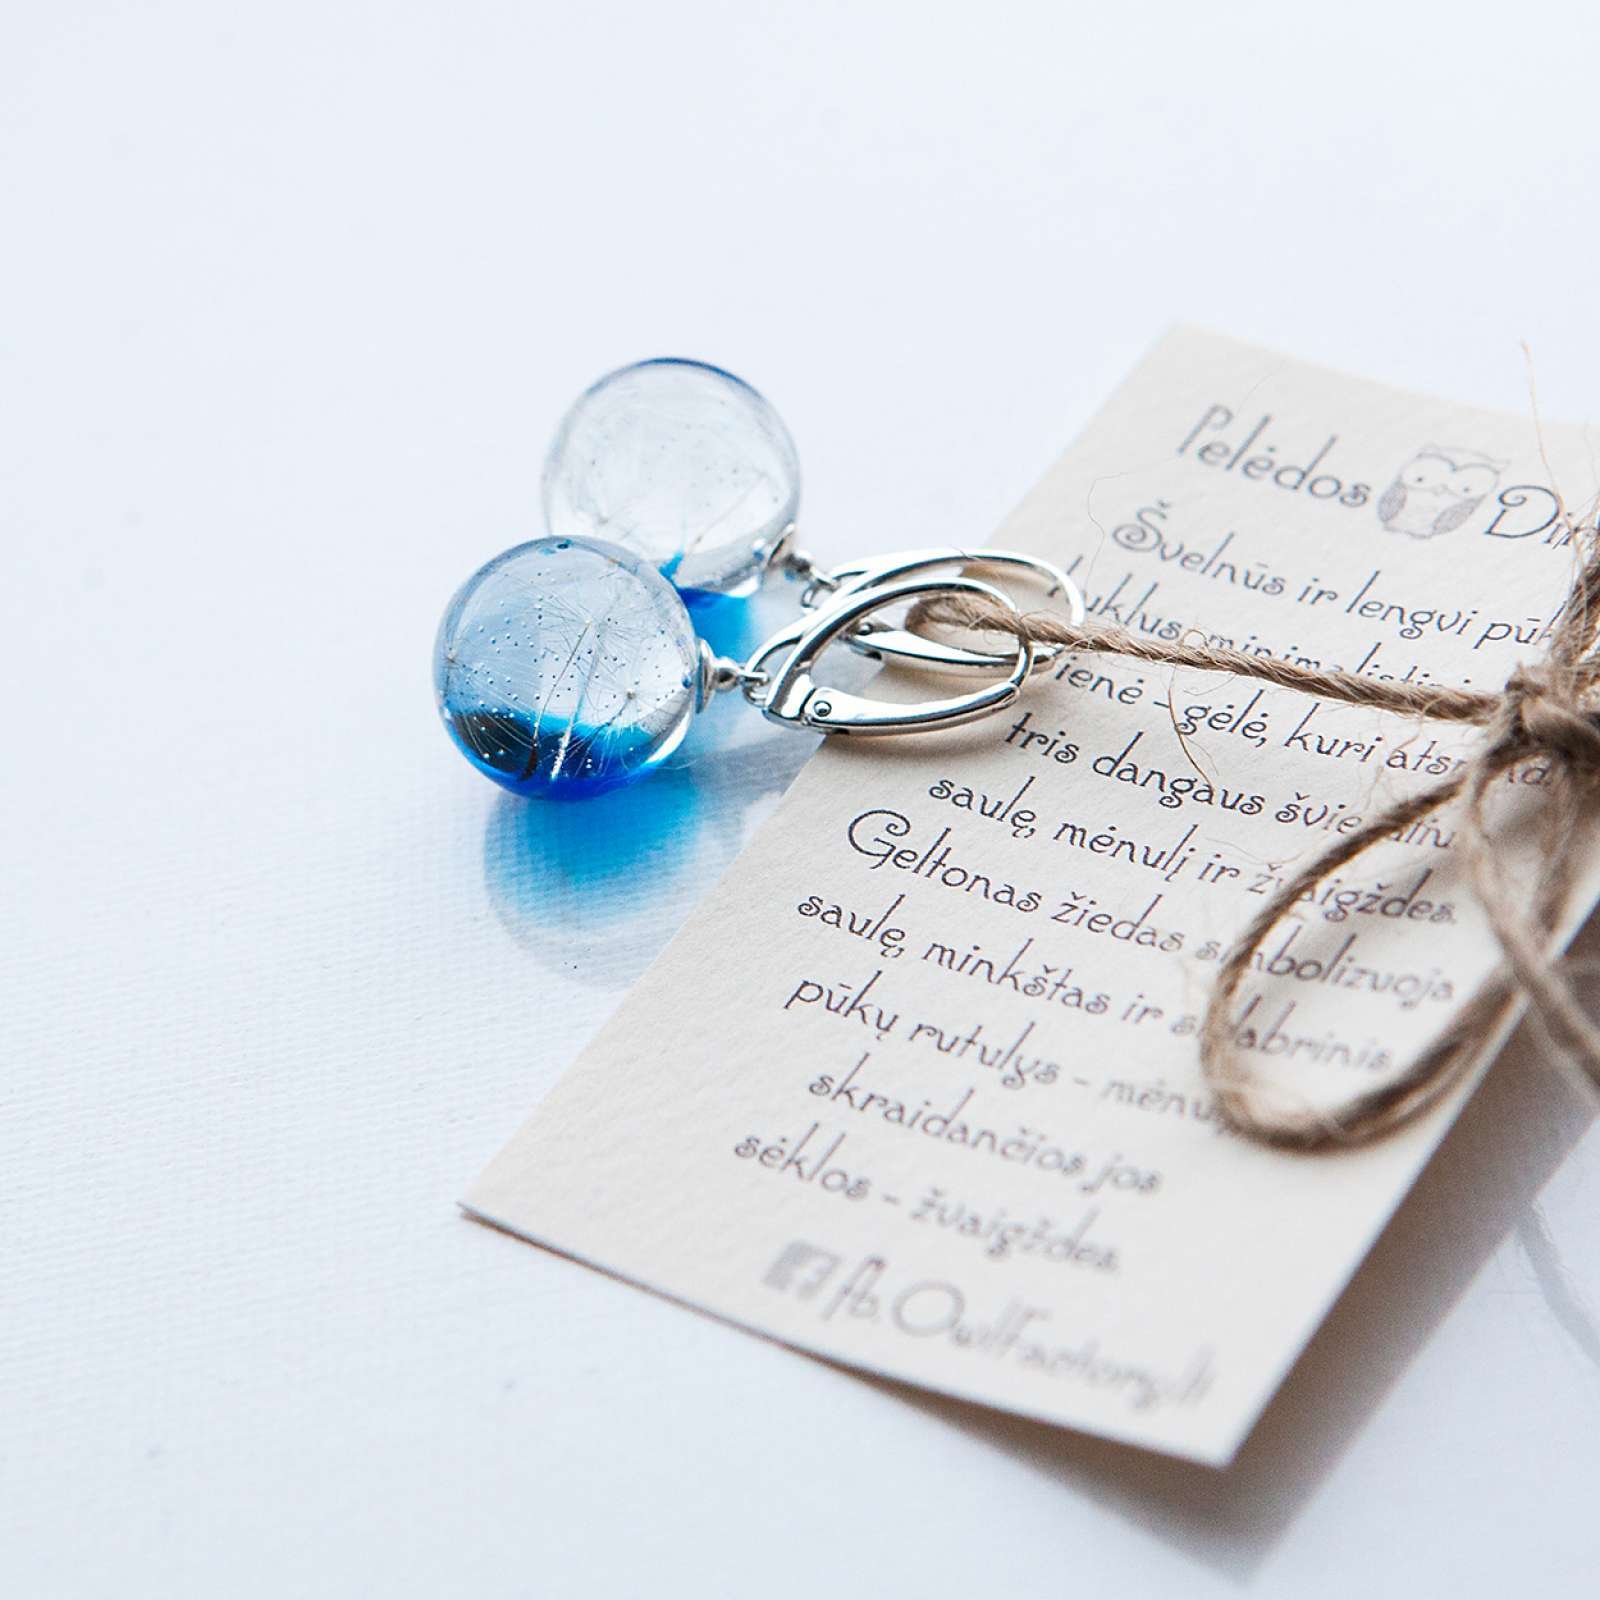 Pelėdos
Švelnūs ir lengvi
kuklus, minimalistinis
gėlė, kuri
tris dangaus
saulę, mėnulį ir žvaigždes.
Geltonas žiedas simbolizuoja
saulę, minkštas ir sidabrinis
pūkų rutulys -
skraidančios jos
sėklos - žvaigždes.
fb.OwlFactory.lt